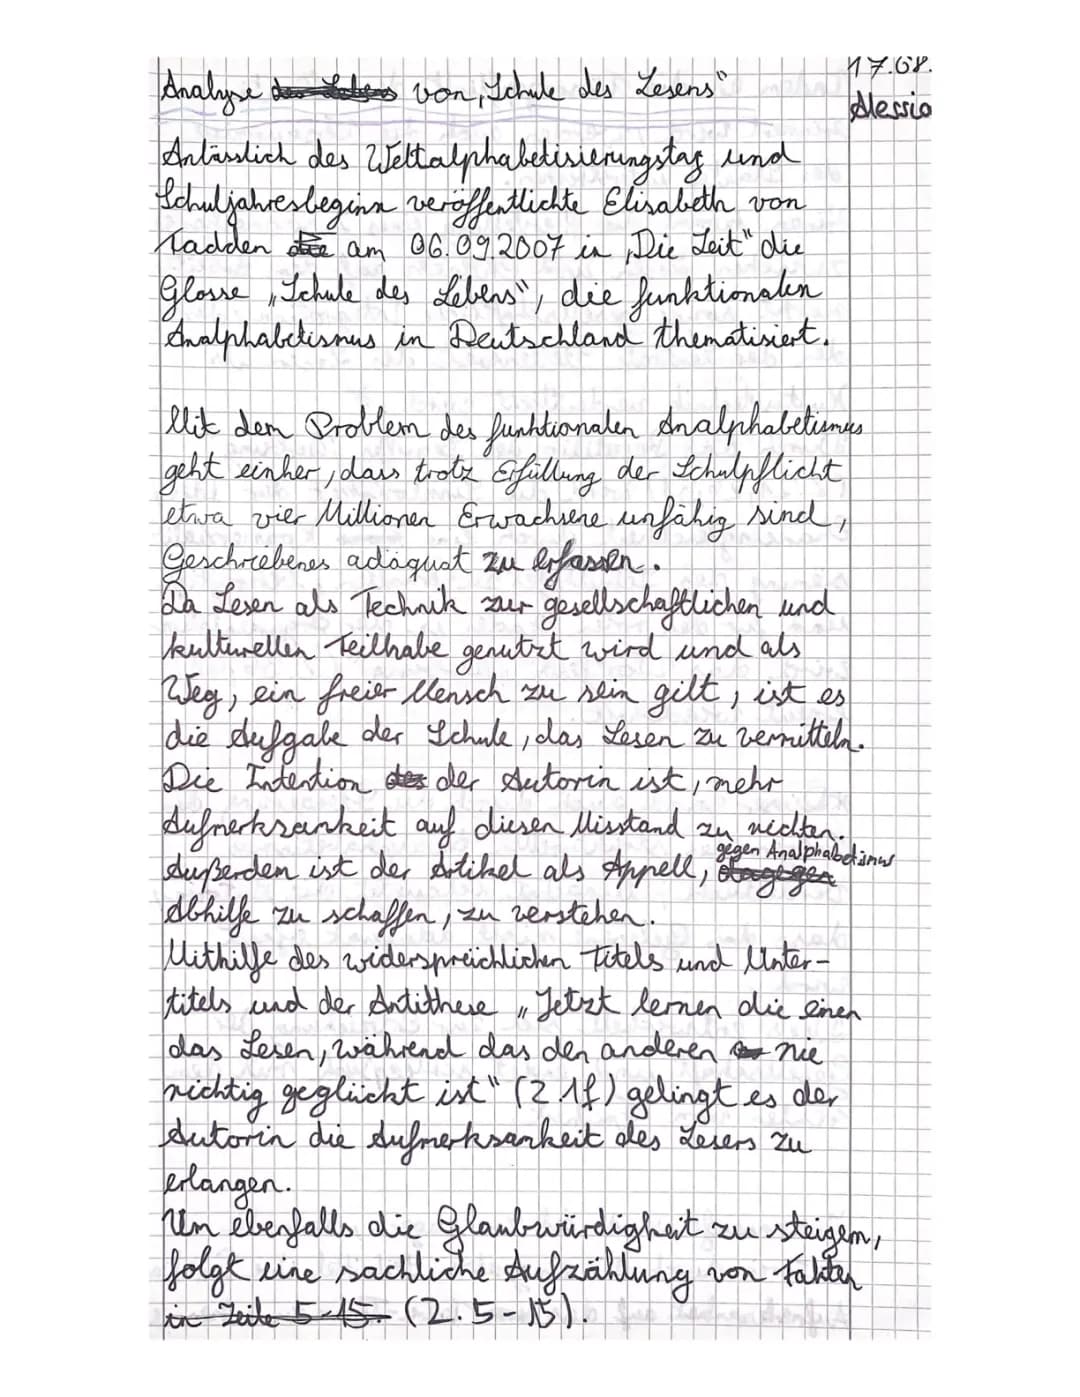 17.08.
Analyse von „Schule des Lesens“
Alessio
Anlässlich des Weltalphabetisierungstag und
Schuljahresbeginn veröffentlichte Elisabeth von
Tadden am 06.09.2007 in „Die Zeit“ die
Glosse „Schule des Lebens“, die funktionalen
Analphabetismus in Deutschland thematisiert.
Mit dem Problem des funktionalen Analphabetismus
geht einher, dass trotz Erfüllung der Schulpflicht
etwa vier Millionen Erwachsene unfähig sind,
Geschriebenes adäquat zu erfassen.
Da Lesen als Technik zur gesellschaftlichen und
kulturellen Teilhabe genutzt wird und als
Weg, ein freier Mensch zu sein gilt, ist es
die Aufgabe der Schule, das Lesen zu vermitteln.
Die Intention der Autorin ist, mehr
Aufmerksamkeit auf diesen Misstand zu richten.
gegen Analphabetismus
Außerdem ist der Artikel als Appell, dagegen
Abhilfe zu schaffen, zu verstehen.
Mithilfe des widersprüchlichen Titels und Unter-
titels und der Antithese „Jetzt lernen die einen
das Lesen, während das den anderen nie
richtig geglückt ist“ (Z. 1f) gelingt es der
Autorin die Aufmerksamkeit des Lesers zu
erlangen.
Um ebenfalls die Glaubwürdigkeit zu steigern,
folgt eine sachliche Aufzählung von Fakten
in Zeile 5-15. (Z. 5-15).